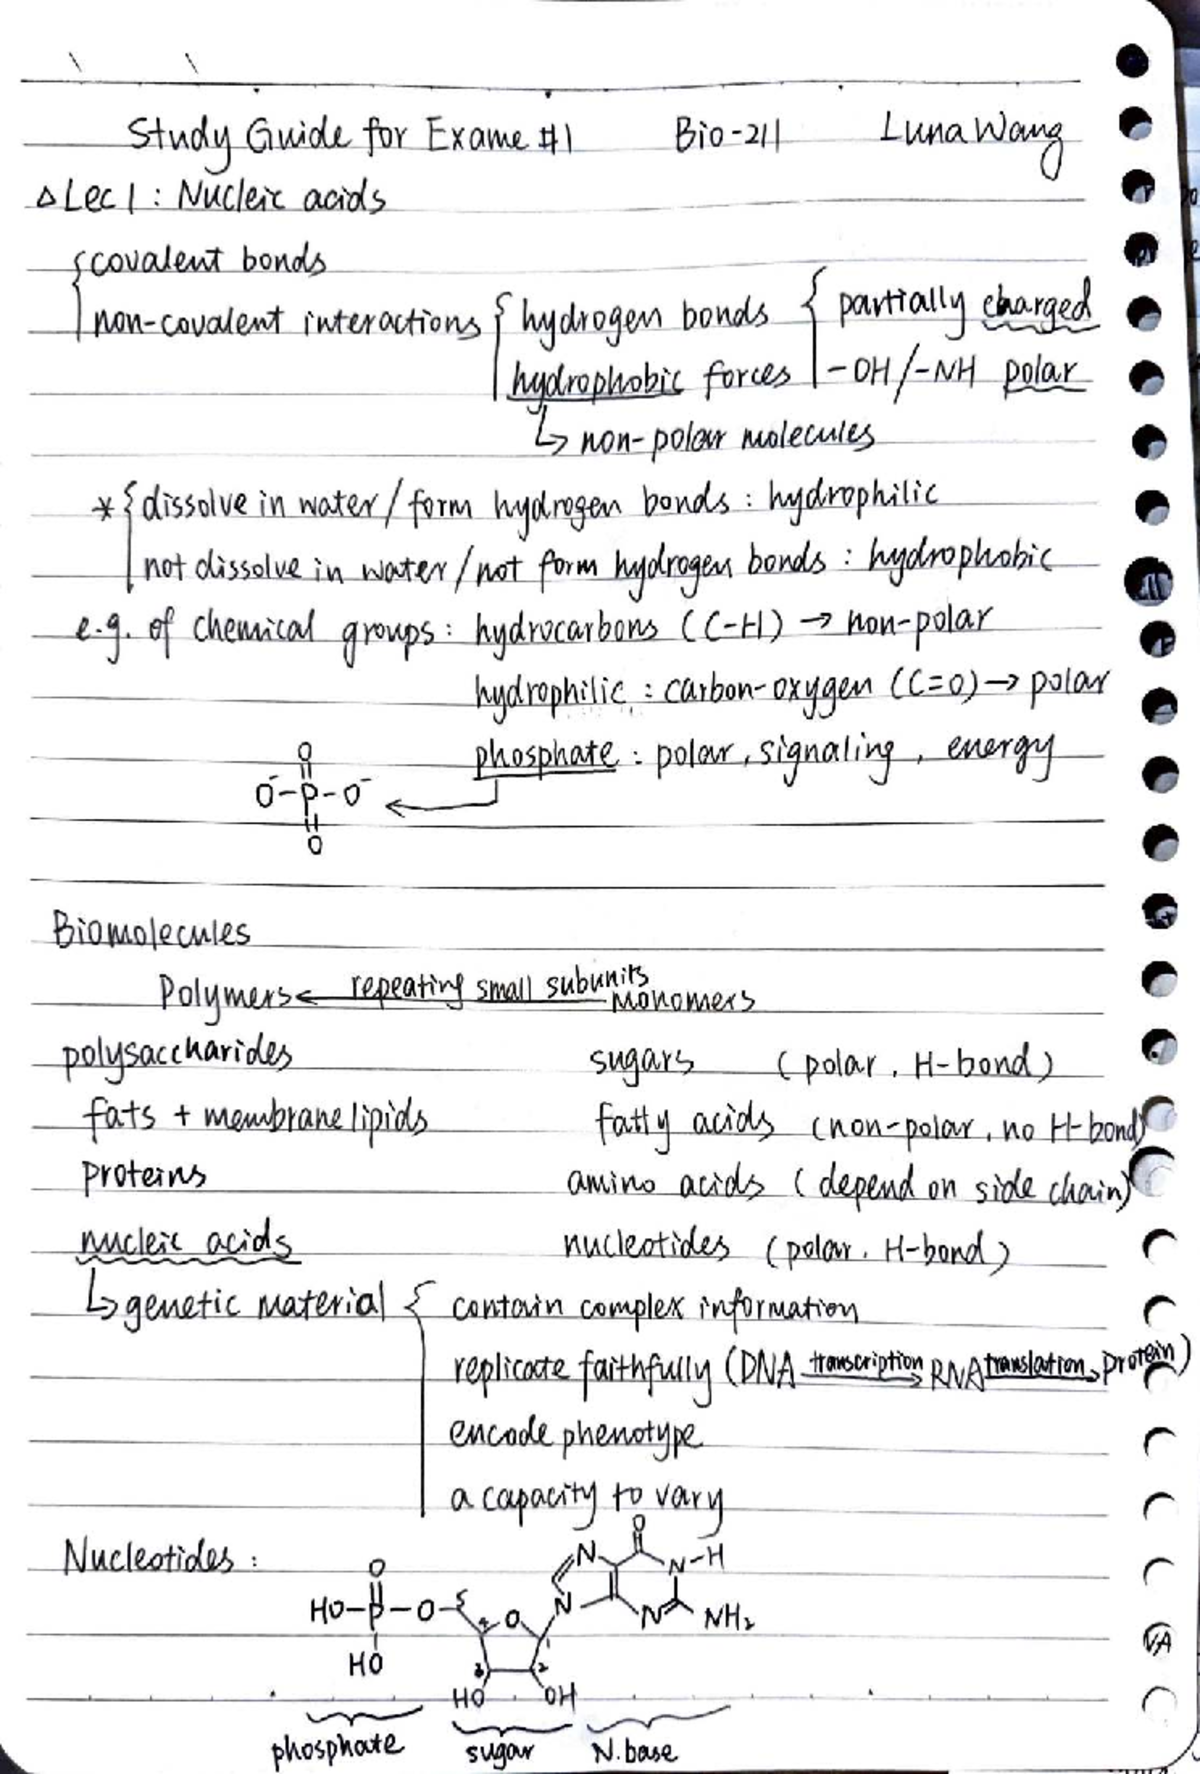 Study Guide for Exame #1 Bio-211 Luna Wang
△ Lec 1 : Nucleic acids
{ covalent bonds
non-covalent interactions { hydrogen bonds { partially charged
hydrophobic forces -OH/-NH polar
↳ non-polar molecules
* { dissolve in water / form hydrogen bonds : hydrophilic
not dissolve in water / not form hydrogen bonds : hydrophobic
e.g. of chemical groups : hydrocarbons (C-H) → non-polar
hydrophilic : carbon-oxygen (C=O) → polar
phosphate : polar, signaling, energy
O
O⁻-P-O⁻
O
Biomolecules
Polymers ← repeating small subunits monomers
polysaccharides sugars (polar, H-bond)
fats + membrane lipids fatty acids (non-polar, no H-bond)
Proteins amino acids (depend on side chain)
nucleic acids nucleotides (polar, H-bond)
↳ genetic material { contain complex information
replicate faithfully (DNA transcription→ RNA translation→ protein)
encode phenotype
a capacity to vary
Nucleotides :
O
HO-P-O-5
HO
4 O 1
3 2
HO OH
N O N-H
N N NH₂
phosphate sugar N.base